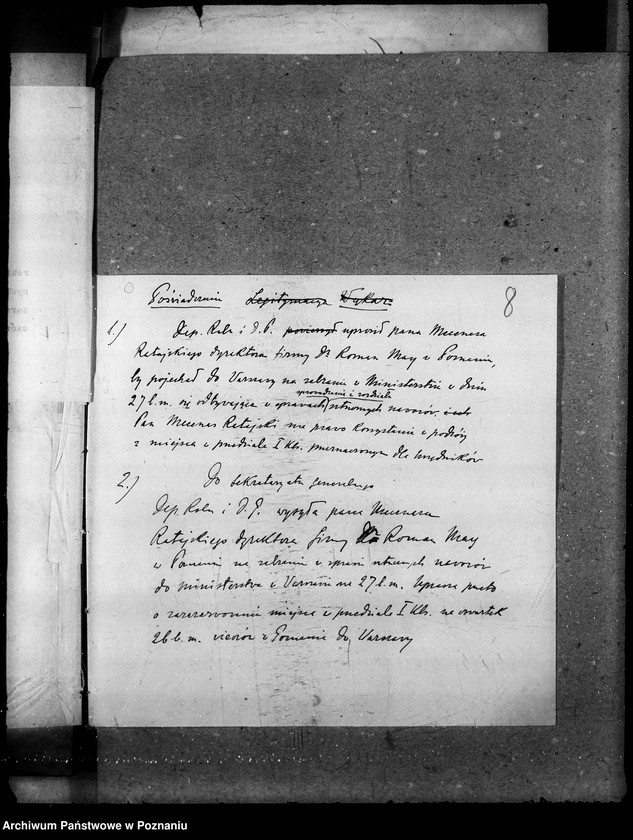 8
Poświadczenie Legitymacya Wykaz
1.) Dep. Roln. i D. P. uprosił pana Mecenasa
Ratajskiego dyrektora firmy Dr Roman May w Poznaniu,
by pojechał do Warszawy na zebranie w Ministerstwie w dniu
sprowadzenia i rozdziału
27 b.m. się odbywające w sprawach sztucznych nawozów, i
Pan Mecenas Ratajski ma prawo korzystania w podróży
z miejsca w przedziale I kl. przeznaczonym dla urzędników
2.) Do Sekretaryatu Generalnego
Dep. Roln. i D. P. wysyła pana Mecenasa
Ratajskiego dyrektora firmy Dr Roman May
w Poznaniu na zebranie w sprawie sztucznych nawozów
do ministerstwa w Warszawie na 27 b.m. Uprasza przeto
o zarezerwowanie miejsca w przedziale I kl. na czwartek
26 b.m. wieczór z Poznania do Warszawy
Archiwum Państwowe w Poznaniu